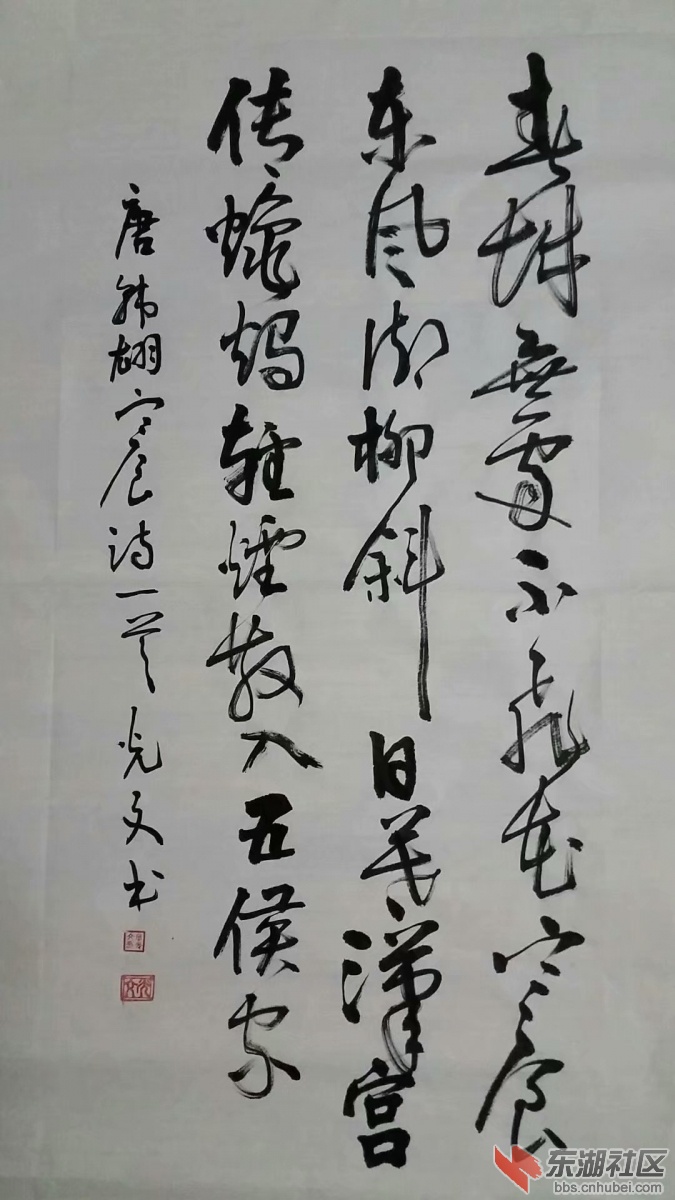 春城無處不飛花寒食
东风御柳斜日暮漢宫
传蠟燭輕煙散入五侯家
唐韩翃寒食诗一首 光文书
东湖社区
bbs.cnhubei.com